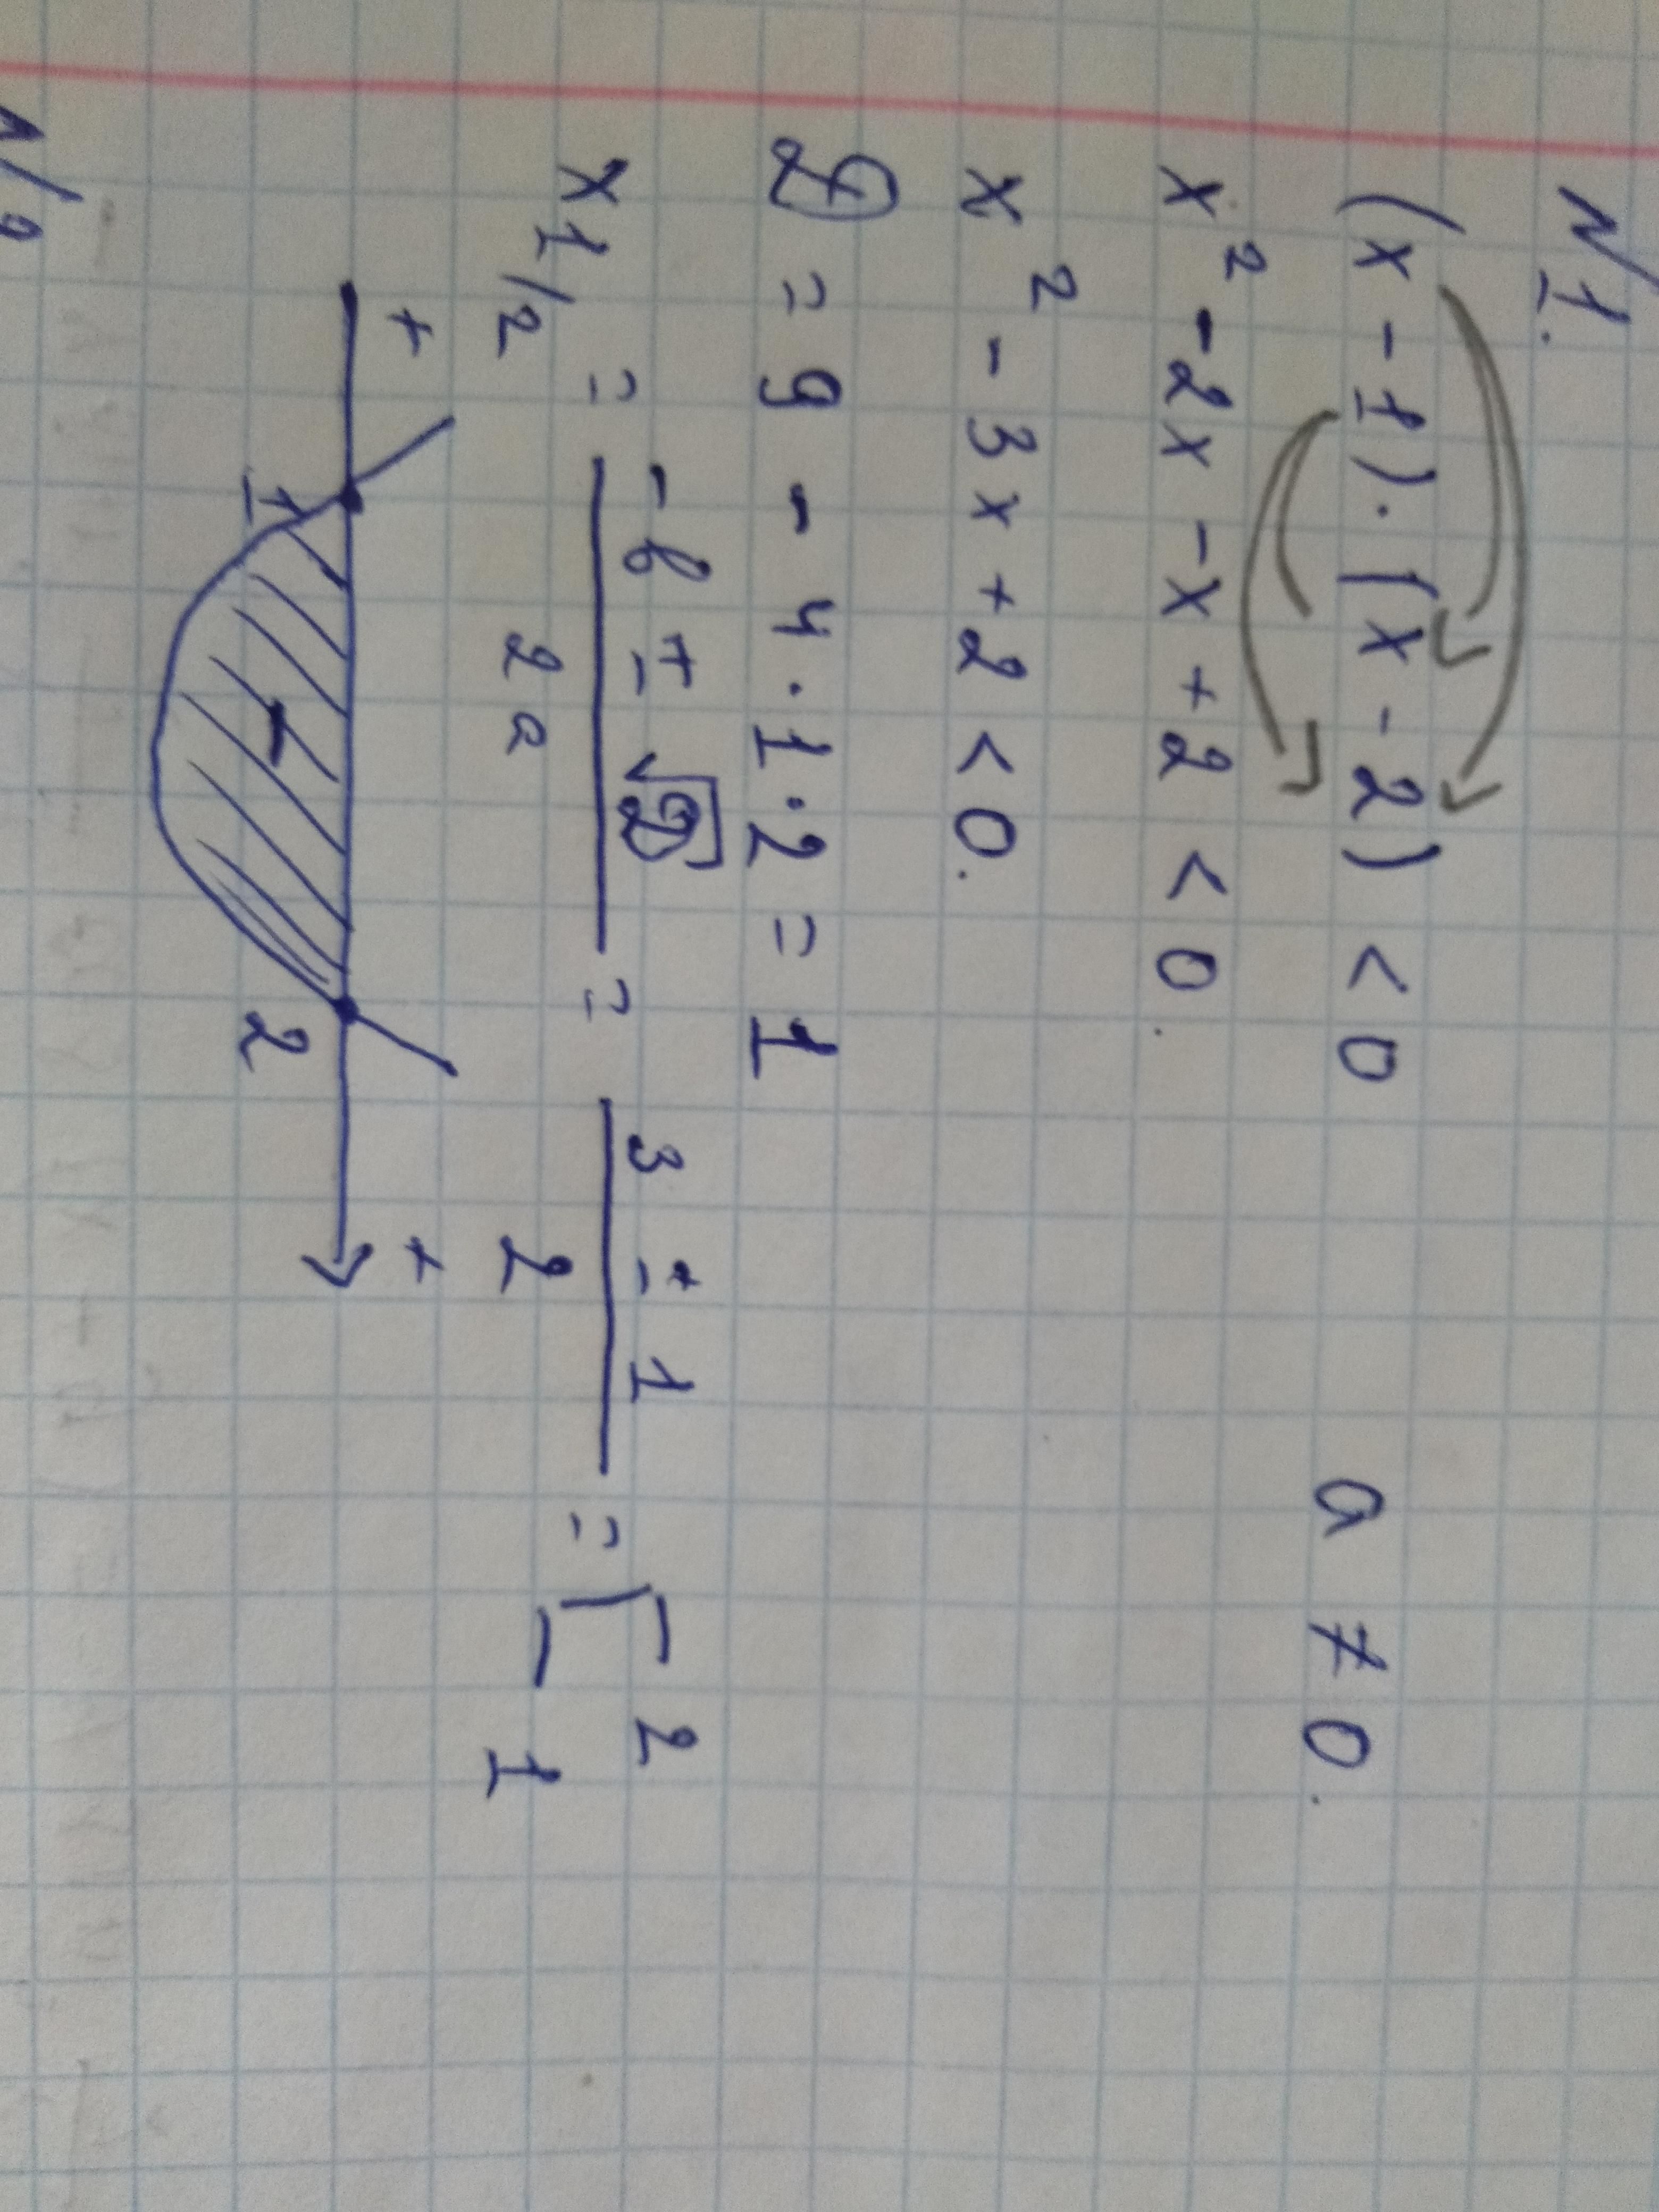 №1.
(x - 1) · (x - 2) < 0        a ≠ 0.
x² - 2x - x + 2 < 0.
x² - 3x + 2 < 0.
D = 9 - 4 · 1 · 2 = 1
x1/2 = (-b ± √D) / 2a = (3 ± 1) / 2 = [ 2
1
+ - +
1 2
№2